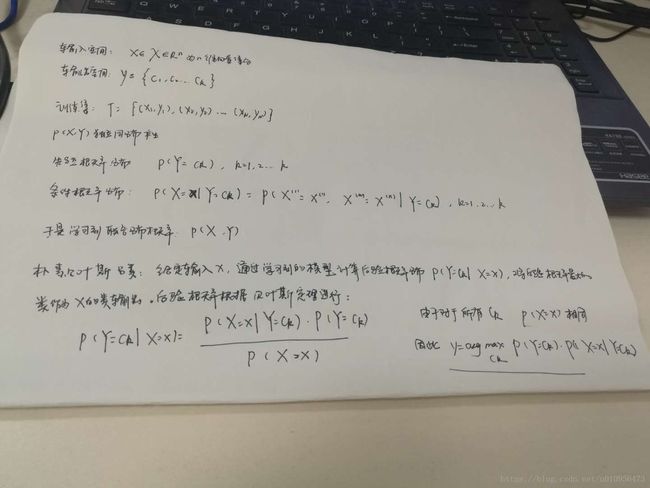 输入空间: X∈ X∈Rⁿ 为n维向量集合
输出空间: y= {C₁,C₂...Ck}
训练集: T= {(x₁,y₁),(x₂,y₂)...(xN,yN)}
P(X,Y)独立同分布产生
先验概率分布 P(Y=Ck), k=1,2...k
条件概率分布: P(X=x|Y=Ck) = P(X⁽¹⁾=x⁽¹⁾, X⁽ⁿ⁾=x⁽ⁿ⁾|Y=Ck), k=1,2...k
于是学习到联合分布概率 P(X,Y)
朴素贝叶斯分类: 给定输入x, 通过学习到的模型计算后验概率分布 P(Y=Ck|X=x), 将后验概率最大的
类作为X的类输出. 后验概率根据贝叶斯定理进行:
P(Y=Ck|X=x)= P(X=x|Y=Ck)·P(Y=Ck) / P(X=x)
由于对于所有Ck P(X=x)相同
因此 y=arg max Ck P(Y=Ck)·P(X=x|Y=Ck)
https://blog.csdn.net/u010956473